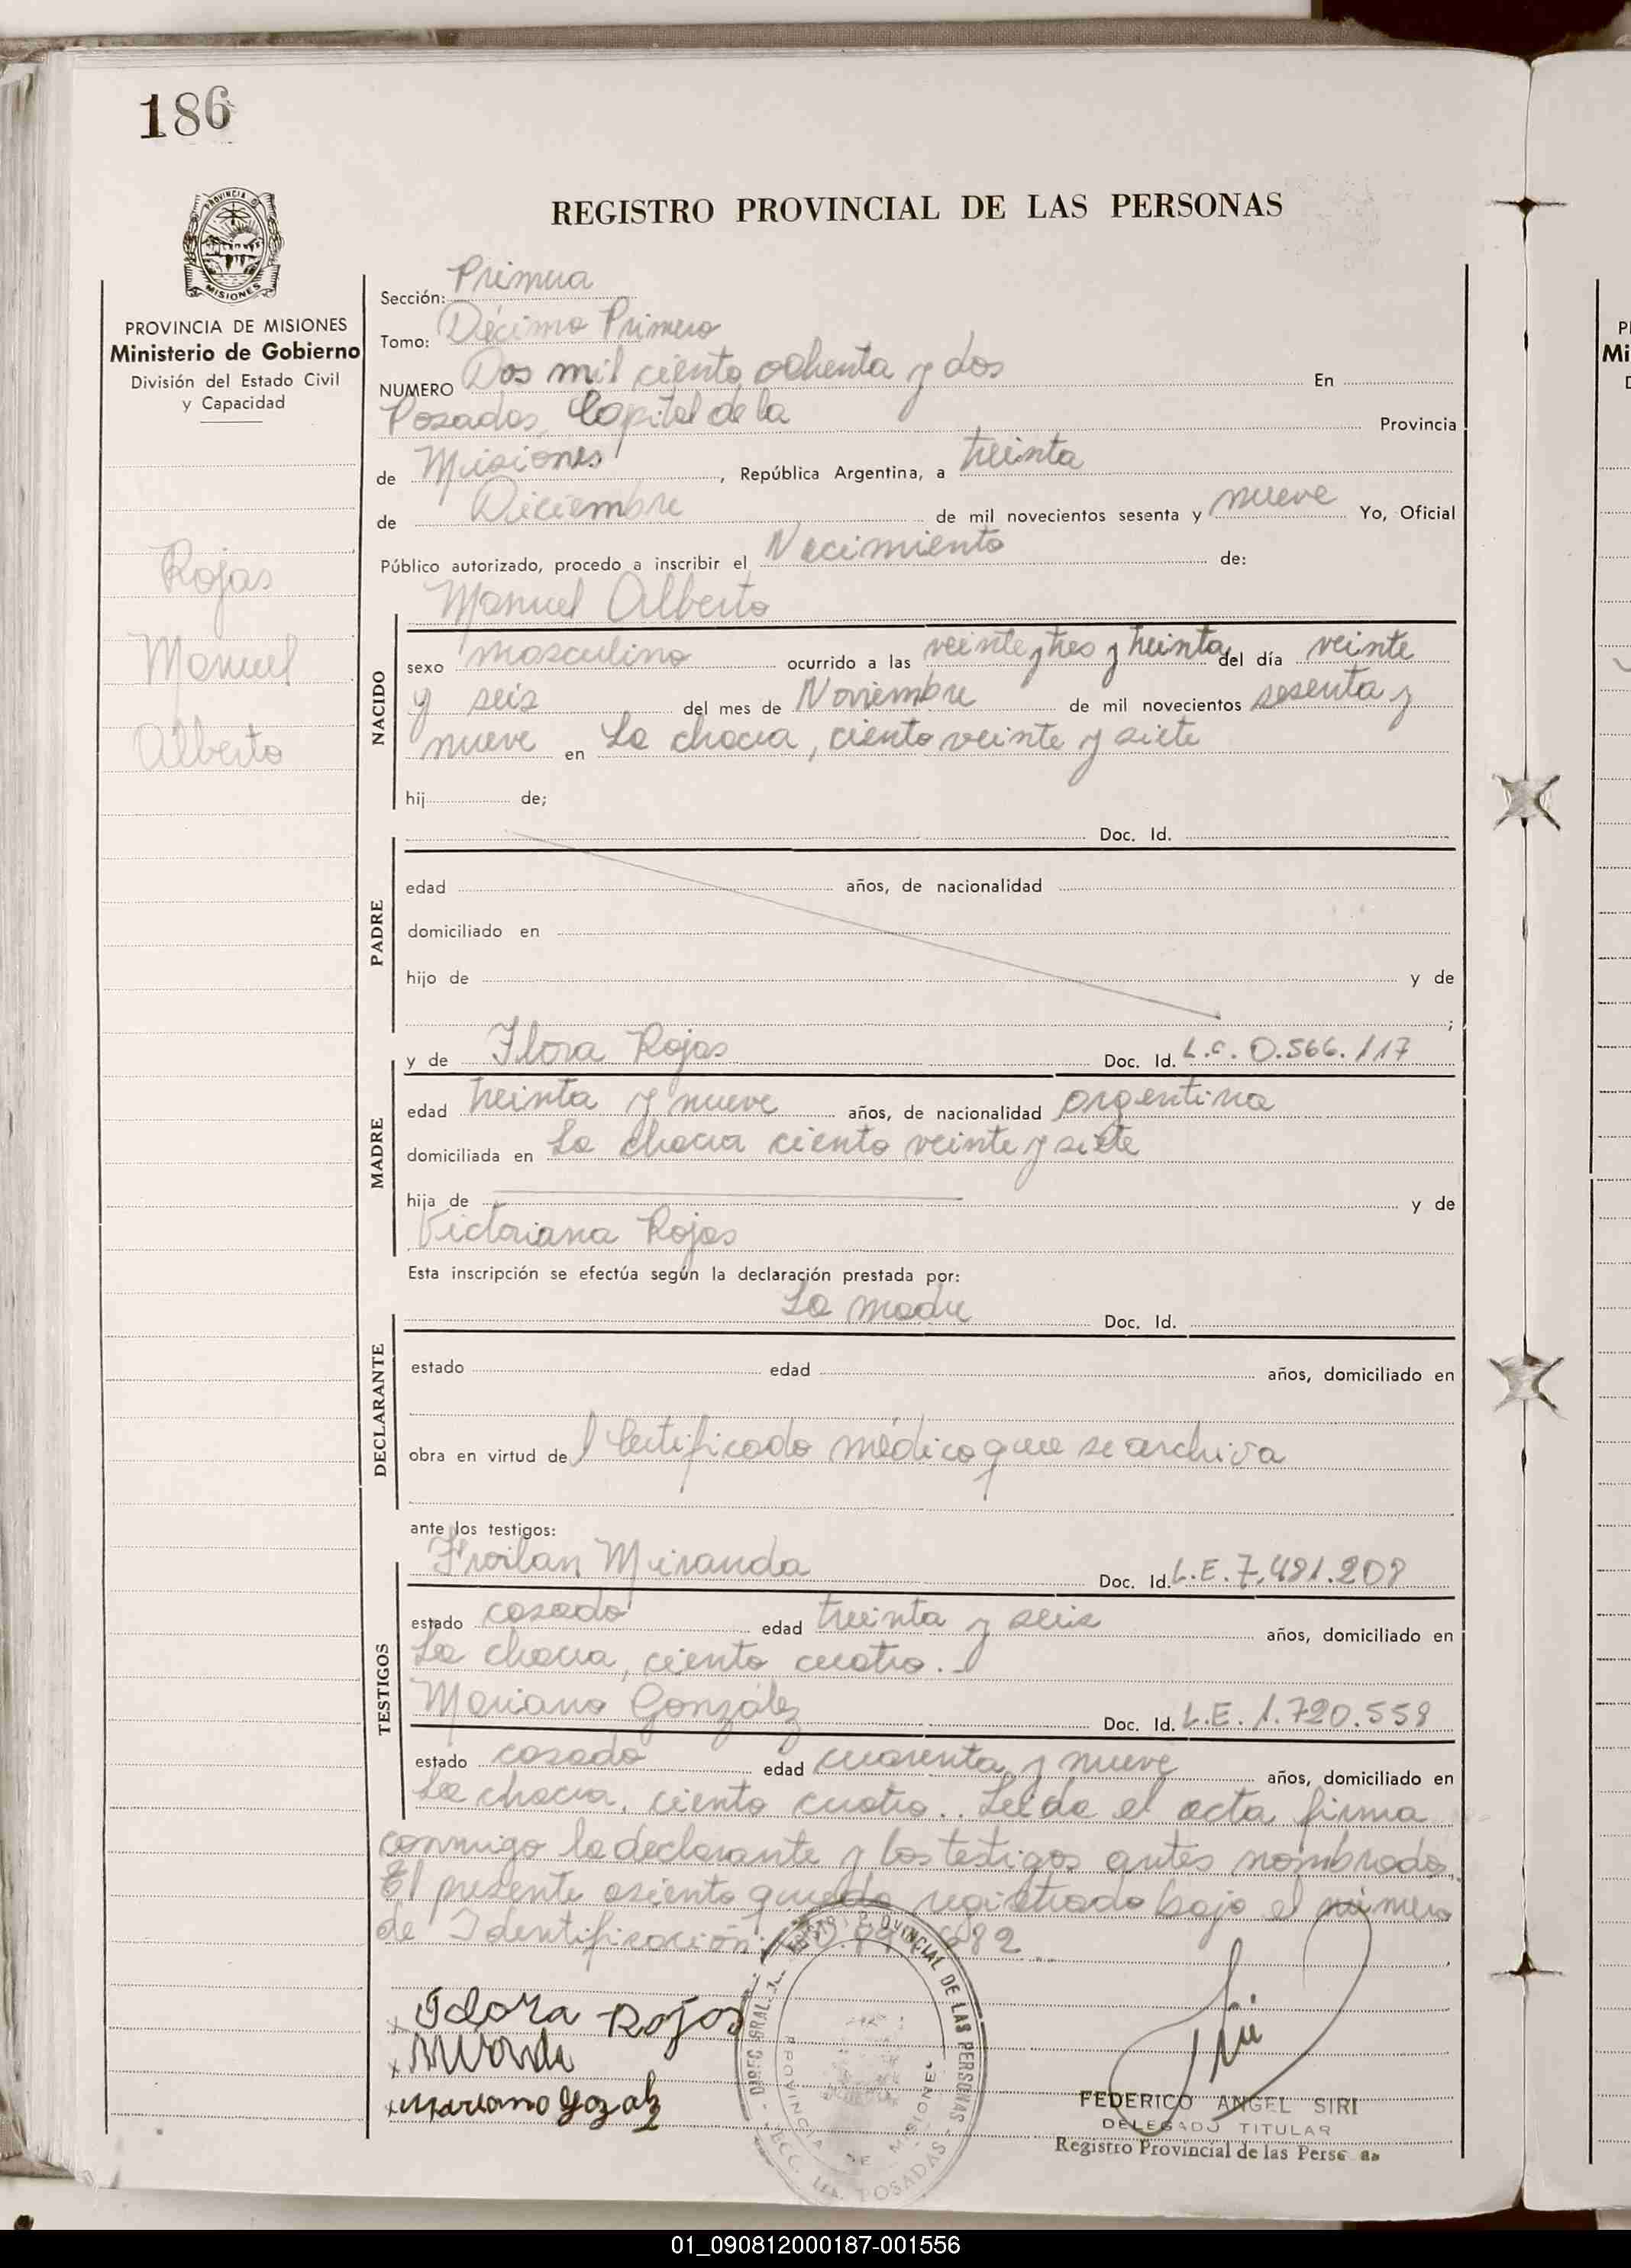 186
REGISTRO PROVINCIAL DE LAS PERSONAS
PROVINCIA DE MISIONES
Ministerio de Gobierno
División del Estado Civil
y Capacidad
Rojas
Manuel
Alberto
Sección: Primera
Tomo: Décimo Primero
NUMERO Dos mil ciento ochenta y dos En
Posadas, Capital de la Provincia
de Misiones, República Argentina, a treinta
de Diciembre de mil novecientos sesenta y nueve Yo, Oficial
Público autorizado, procedo a inscribir el Nacimiento de:
Manuel Alberto
NACIDO
sexo masculino ocurrido a las veinte y tres y treinta del día veinte
y seis del mes de Noviembre de mil novecientos sesenta y
nueve en La chacra, ciento veinte y siete
hij de;
PADRE
Doc. Id.
edad años, de nacionalidad
domiciliado en
hijo de y de
;
MADRE
y de Flora Rojas Doc. Id. L.C. 0.566.117
edad treinta y nueve años, de nacionalidad argentina
domiciliada en La chacra ciento veinte y siete
hija de y de
Victoriana Rojas
Esta inscripción se efectúa según la declaración prestada por:
DECLARANTE
La madre Doc. Id.
estado edad años, domiciliado en
obra en virtud del Certificado médico que se archiva
ante los testigos:
TESTIGOS
Froilan Miranda Doc. Id. L.E. 7.481.208
estado casado edad treinta y seis años, domiciliado en
La chacra, ciento cuatro.
Mariano González Doc. Id. L.E. 1.720.558
estado casado edad cuarenta y nueve años, domiciliado en
La chacra, ciento cuatro.. Leída el acta firma
conmigo la declarante y los testigos antes nombrados.
El presente asiento queda registrado bajo el número
de Identificación
x Flora Rojas
x Miranda
x Mariano Gozalz
DIREC. GRAL. REGISTRO PROVINCIAL DE LAS PERSONAS
PROVINCIA DE MISIONES
POSADAS
FEDERICO ANGEL SIRI
DELEGADO TITULAR
Registro Provincial de las Personas
01_090812000187-001556